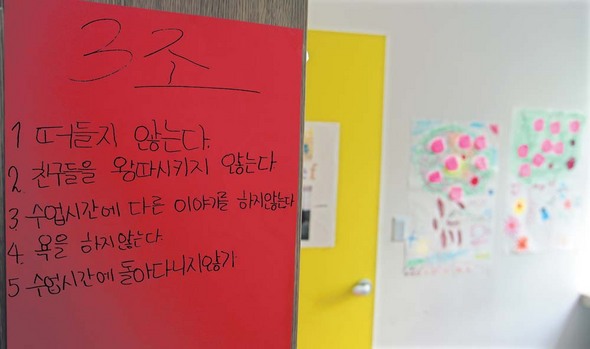 3조
1 떠들지 않는다.
2. 친구들을 왕따시키지 않는다
3 수업시간에 다른 이야기를 하지않는다
4. 욕을 하지않는다.
5 수업시간에 돌아다니지않기